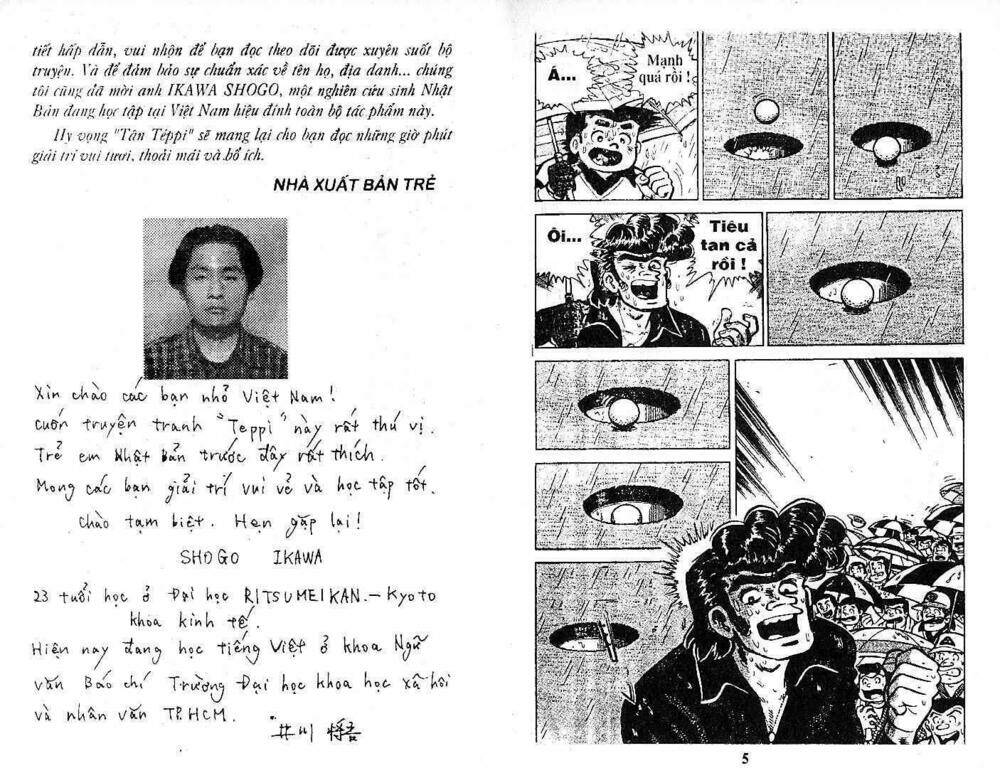 tiết hấp dẫn, vui nhộn để bạn đọc theo dõi được xuyên suốt bộ
truyện. Và để đảm bảo sự chuẩn xác về tên họ, địa danh... chúng
tôi cũng đã mời anh IKAWA SHOGO, một nghiên cứu sinh Nhật
Bản đang học tập tại Việt Nam hiệu đính toàn bộ tác phẩm này.
Hy vọng "Tân Têppi" sẽ mang lại cho bạn đọc những giờ phút
giải trí vui tươi, thoải mái và bổ ích.
NHÀ XUẤT BẢN TRẺ
Xin chào các bạn nhỏ Việt Nam!
cuốn truyện tranh "Teppi" này rất thú vị.
Trẻ em Nhật Bản trước đây rất thích.
Mong các bạn giải trí vui vẻ và học tập tốt.
chào tạm biệt. Hẹn gặp lại!
SHOGO IKAWA
23 tuổi học ở Đại học RITSUMEIKAN.-Kyoto
khoa kinh tế.
Hiện nay đang học tiếng Việt ở khoa Ngữ
văn Báo chí Trường Đại học khoa học xã hôi
và nhân văn TP.HCM.
井川 将吾
Á...
Mạnh
quá rồi !
Ôi...
Tiêu
tan cả
rồi !
5